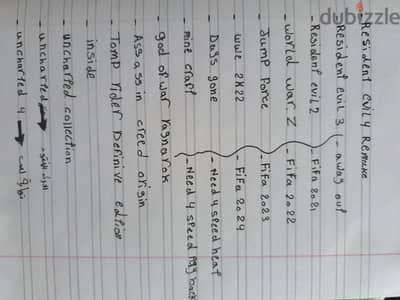 dubizzle
Resident Evil 4 Remake
- Resident evil 3 - a way out
- Resident evil 2 - Fifa 2021
- world war Z - Fifa 2022
- Jump Force - Fifa 2023
- wwe 2K22 - Fifa 2024
- Days gone - Need 4 speed heat
- mine craft - Need 4 speed
- god of war ragnarok
- Assassin creed origin
- Tomp rider Definive edtion
inside
- uncharted collection
- uncharted →
- uncharted 4 →